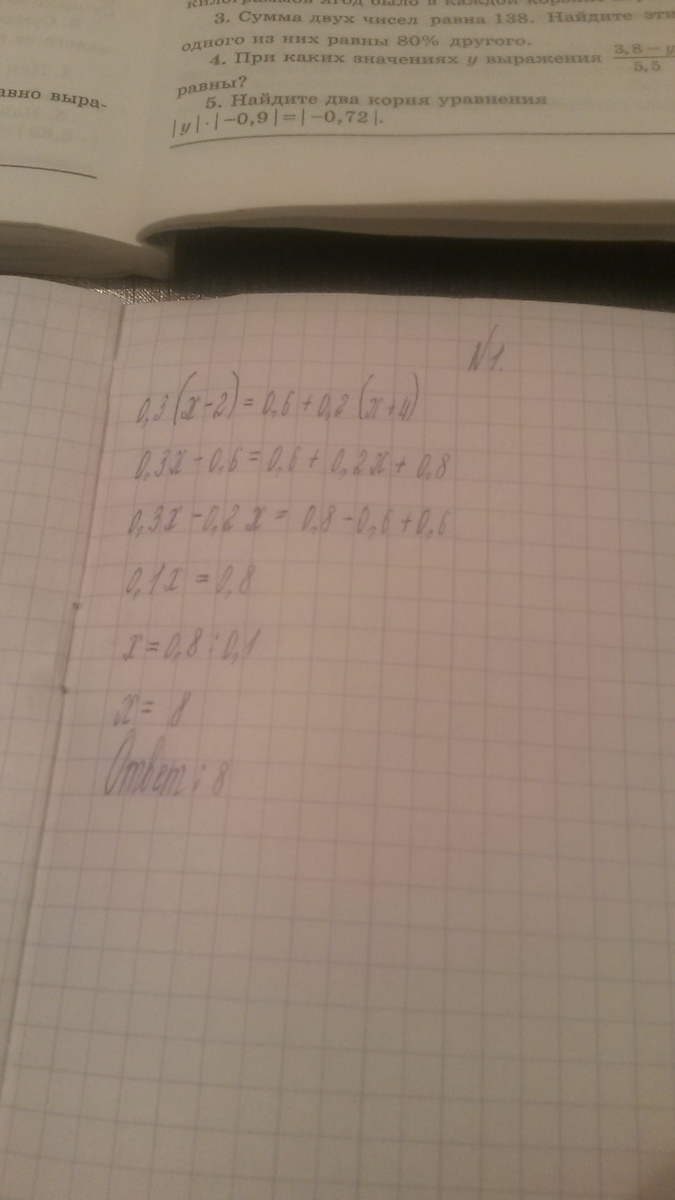 3. Сумма двух чисел равна 138. Найдите эти
одного из них равны 80% другого.
4. При каких значениях y выражения 3,8 – y / 5,5
равны?
5. Найдите два корня уравнения
|y|·|−0,9|=|−0,72|.
авно выра-
N1.
0,3(x-2)=0,6+0,2(x+4)
0,3x-0,6=0,6+0,2x+0,8
0,3x-0,2x=0,8-0,6+0,6
0,1x=0,8
x=0,8:0,1
x=8
Ответ: 8